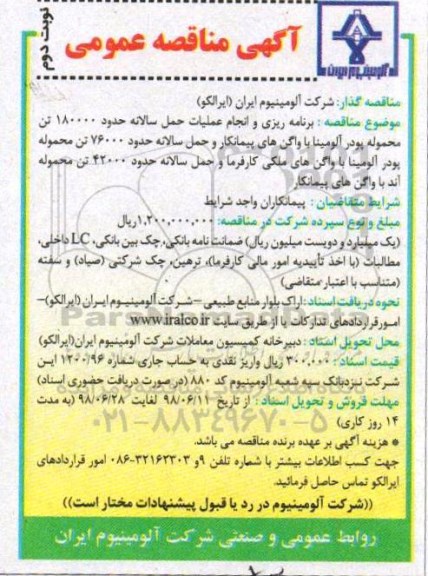 نوبت دوم
آگهی مناقصه عمومی
آلومینیوم ایران
مناقصه گذار: شرکت آلومینیوم ایران (ایرالکو)
موضوع مناقصه : برنامه ریزی و انجام عملیات حمل سالانه حدود ۱۸۰۰۰۰ تن
محموله پودر آلومینا با واگن های پیمانکار و حمل سالانه حدود ۷۶۰۰۰ تن محموله
پودر آلومینا با واگن های ملکی کارفرما و حمل سالانه حدود ۴۲۰۰۰ تن محموله
آند با واگن های پیمانکار
شرایط متقاضیان : پیمانکاران واجد شرایط
مبلغ و نوع سپرده شرکت در مناقصه: ۱.۲۰۰.۰۰۰.۰۰۰ ریال
(یک میلیارد و دویست میلیون ریال) ضمانت نامه بانکی، چک بین بانکی، LC داخلی،
مطالبات (با اخذ تأییدیه امور مالی کارفرما)، ترهین، چک شرکتی (صیاد) و سفته
(متناسب با اعتبار متقاضی)
نحوه دریافت اسناد : اراک بلوار منابع طبیعی – شرکت آلومینیوم ایران (ایرالکو)–
امور قراردادهای تدارکات یا از طریق سایت www.iralco.ir
محل تحویل اسناد : دبیرخانه کمیسیون معاملات شرکت آلومینیوم ایران (ایرالکو)
قیمت اسناد : ۳۰۰.۰۰۰ ریال واریز نقدی به حساب جاری شماره ۱۲۰۰/۹۶ این
شرکت نزد بانک سپه شعبه آلومینیوم کد ۸۸۰ (در صورت دریافت حضوری اسناد)
مهلت فروش و تحویل اسناد : از تاریخ ۹۸/۰۶/۱۱ لغایت ۹۸/۰۶/۲۸ (به مدت
۱۴ روز کاری)
* هزینه آگهی بر عهده برنده مناقصه می باشد.
جهت کسب اطلاعات بیشتر با شماره تلفن ۹و ۳۲۱۶۲۳۰۳-۰۸۶ امور قراردادهای
ایرالکو تماس حاصل فرمائید.
((شرکت آلومینیوم در رد یا قبول پیشنهادات مختار است))
روابط عمومی و صنعتی شرکت آلومینیوم ایران
۰۲۱-۸۸۳۴۹۶۷۰-۵